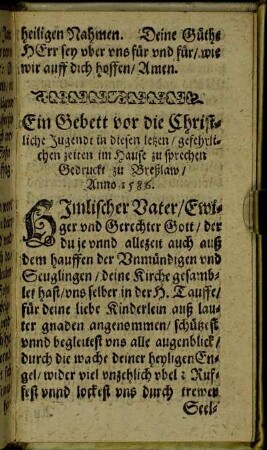 heiligen Nahmen. Deine Güthe
HErr sey vber vns für vnd für/ wie
wir auff dich hoffen/ Amen.
Ein Gebett vor die Christ-
liche Jugendt in diesen letzen/ gefehrli-
chen zeiten im Hause zu sprechen
Gedruckt zu Breßlaw/
Anno 1586.
HImlischer Vater/ Ewi-
ger vnd Gerechter Gott/ der
du je vnnd allezeit auch auß
dem hauffen der Vnmündigen vnd
Seuglingen/ deine Kirche gesamb-
let hast/ vns selber in der H. Tauffe/
für deine liebe Kinderlein auß lau-
ter gnaden angenommen/ schützest
vnnd begleitest vns alle augenblick/
durch die wache deiner heyligen En-
gel/ wider viel vnzehlich vbel: Ruf-
fest vnnd lockest vns durch trewen
Seel-